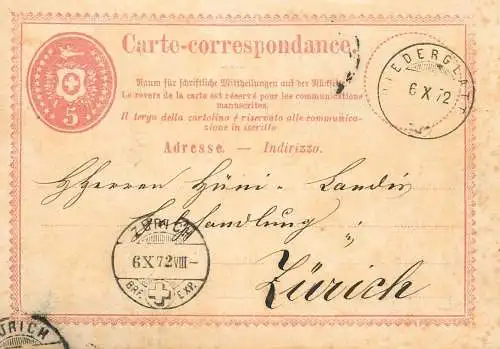 Carte-correspondance.
NIEDERGLATT
6 X 72
5
Raum für schriftliche Mittheilungen auf der Rückseite.
Le revers de la carte est réservé pour les communications
manuscrites.
Il tergo della cartolina è riservato alle communica-
zioni in iscritto
Adresse. — Indirizzo.
HHerren Hüni-Landis
ZÜRICH
6 X 72 VIII-
BRF. EXP.
Zürich
ZÜRICH